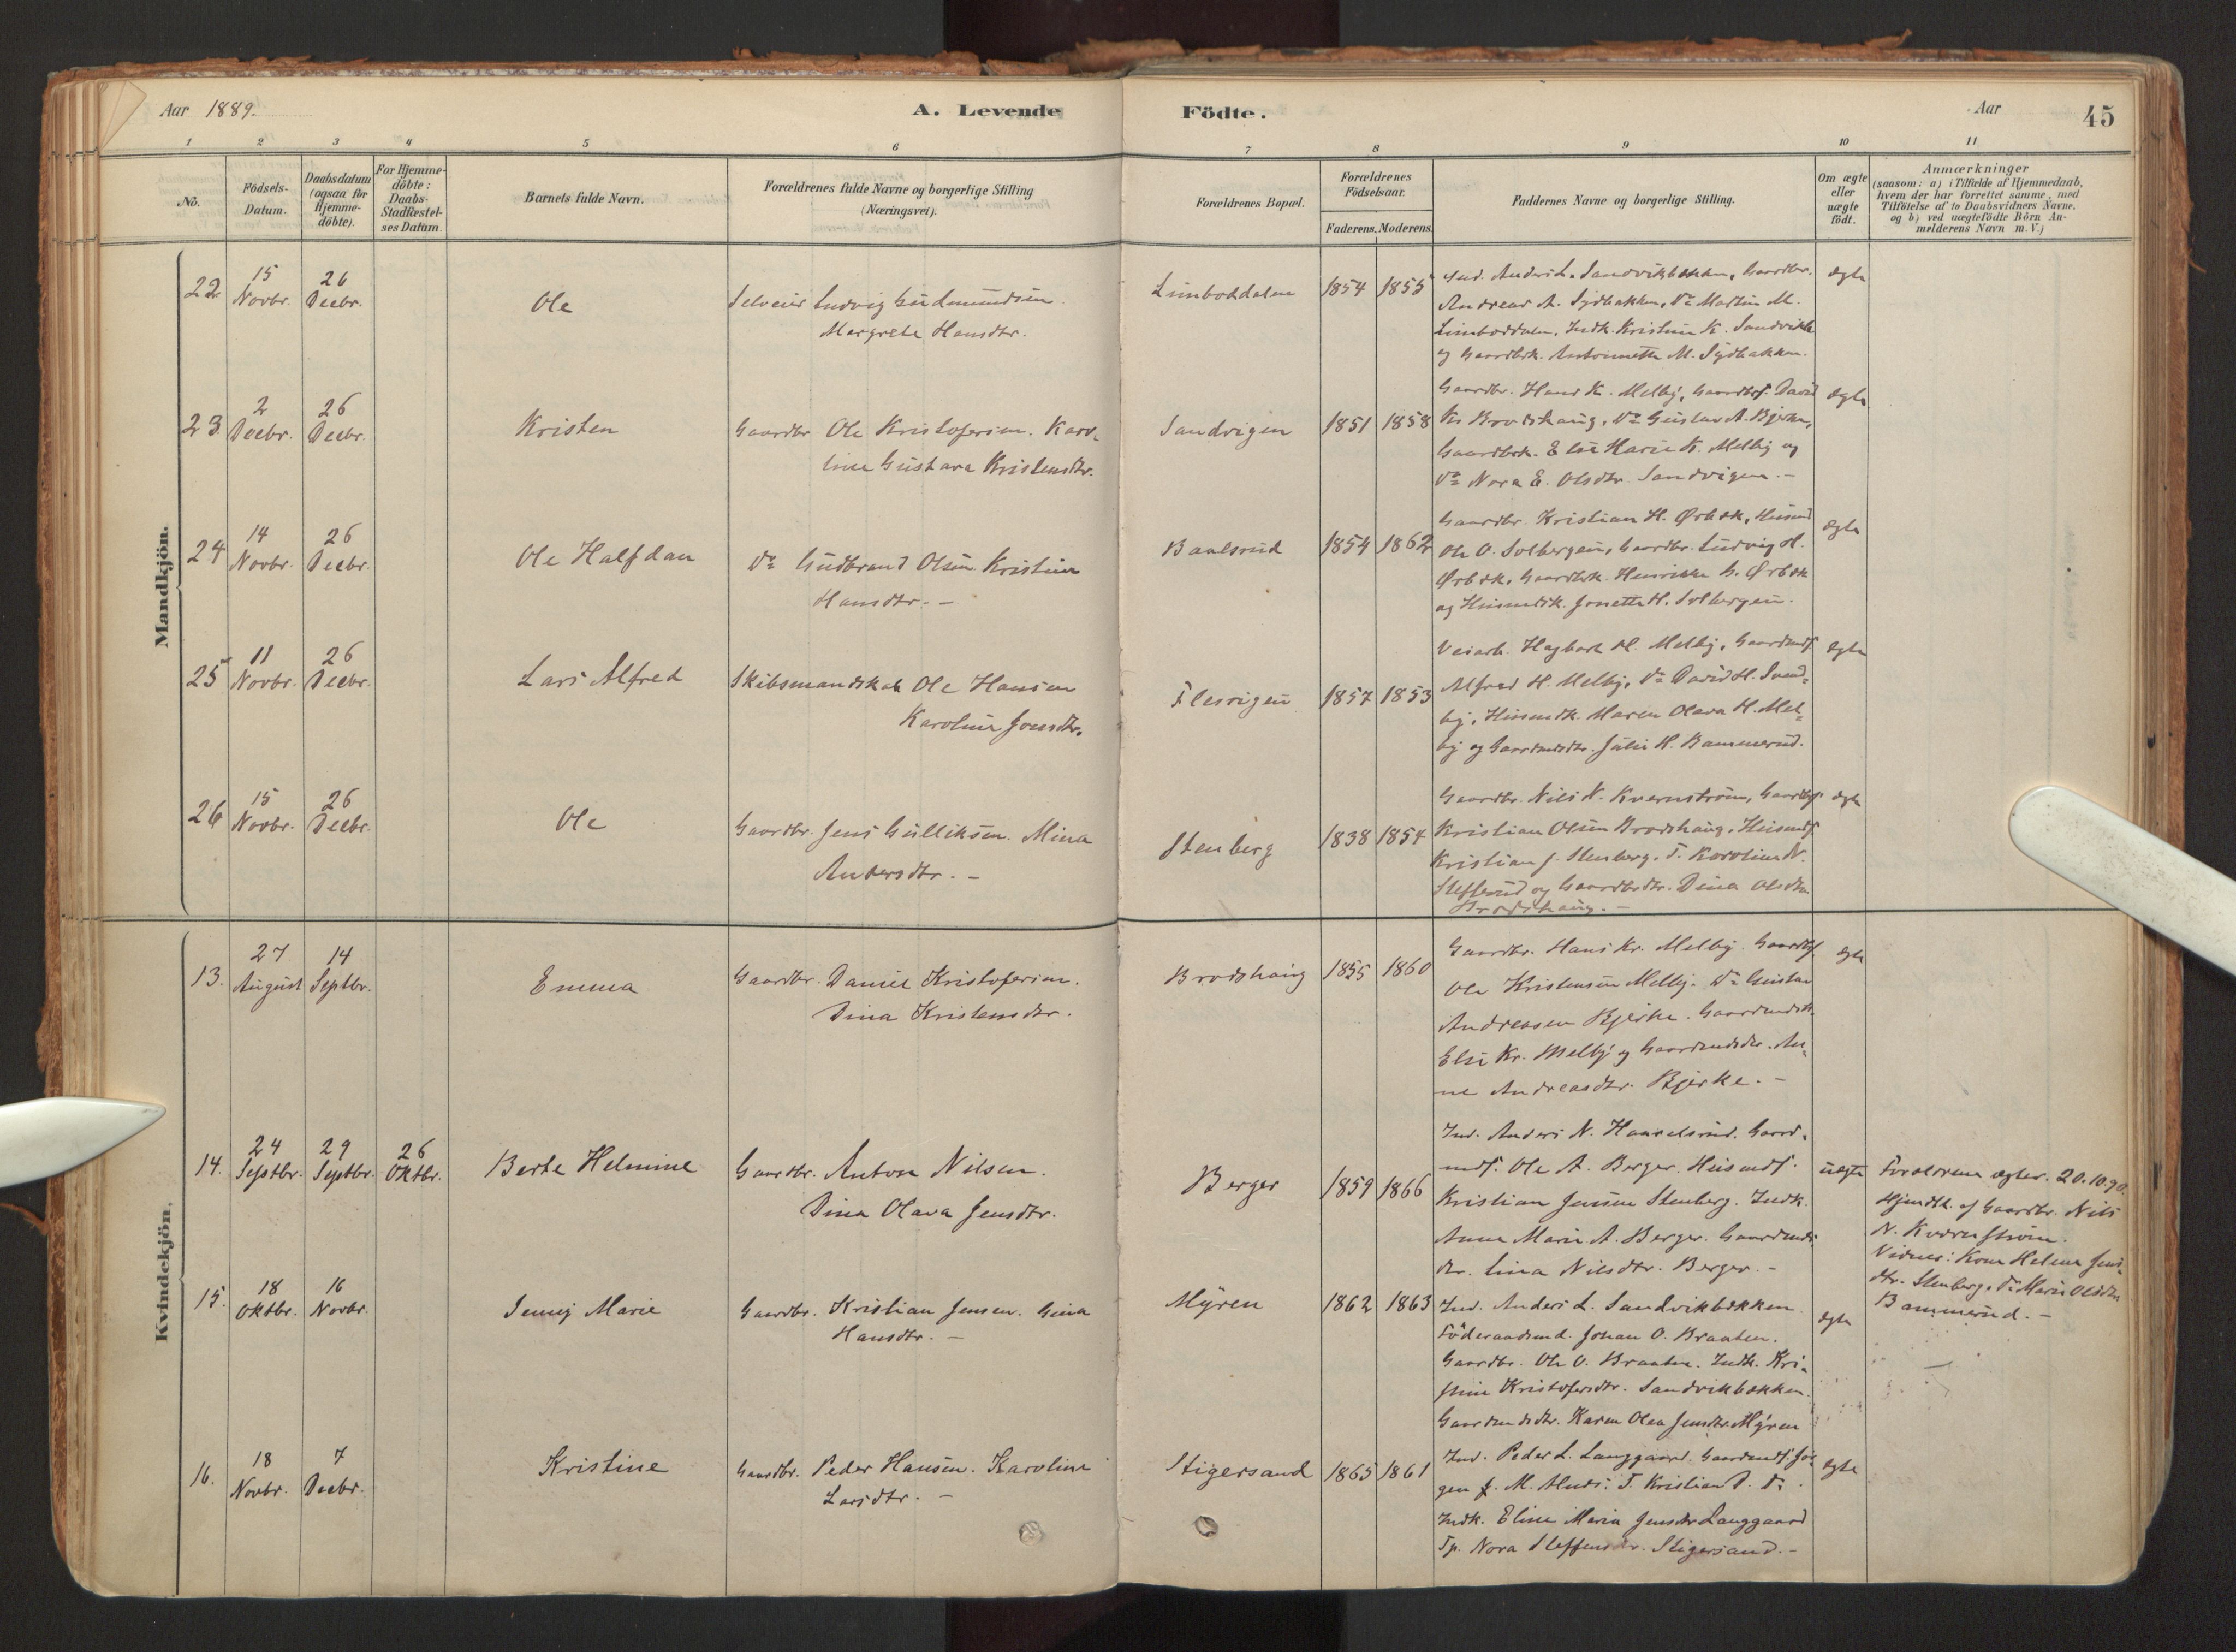 Aar 1889.
A. Levende Födte.
Aar
45
1 2 3 4 5 6 7 8 9 10 11
No.
Födsels-Datum.
Daabsdatum (ogsaa for Hjemme-döbte).
For Hjemme-döbte: Daabs-Stadfæstel-ses Datum.
Barnets fulde Navn.
Forældrenes fulde Navne og borgerlige Stilling
(Næringsvei).
Forældrenes Bopæl.
Forældrenes Födselsaar.
Faderens. Moderens.
Faddernes Navne og borgerlige Stilling.
Om ægte eller uægte födt.
Anmærkninger
(saasom: a) i Tilfælde af Hjemmedaab,
hvem der har forrettet samme, med
Tilföielse af to Daabsvidners Navne,
og b) ved uægtefödte Börn An-
melderens Navn m. V.)
Mandkjön.
22 15 Novbr. 26 Decbr. Ole
Selveier Ludvig Gudmundsen
Margrethe Hansdtr.
Limboddalen 1854 1855
Ind. Anders L. Sandvikbakken, Gaardbr.
Andreas A. Sydbakken, Do Martin M.
Limboddalen, Indk. Kristine K. Sandvikb
og Gaardbrk. Antonette M. Sydbakken.
ægte
23. 2 Decbr. 26 Decbr. Kristen
Gaardbr. Ole Kristofersen. Karo-
line Gustava Kristensdtr.
Sandvigen 1851 1858
Gaardbr. Hans K. Melby, Gaardbrs. David
Kr Brodshaug, Do Gustav A. Bjerke,
Gaardbrk. Elise Marie K. Melby og
Do Nora E. Olsdtr. Sandvigen. -
ægte
24 14 Novbr. 26 Decbr. Ole Halfdan
Do Gudbrand Olsen. Kristine
Hansdtr. -
Baalsrud 1854 1862
Gaardbr. Kristian H. Ørbæk, Husmd
Ole O. Solbergeie, Gaardbr. Ludvig H.
Ørbæk, Gaardbrk. Henrikke G. Ørbæk
og Husmdsk. Jonette H. Solbergeie.
ægte
25 11 Novbr. 26 Decbr. Lars Alfred
Skibsmandskab Ole Hansen
Karoline Jonsdtr.
Flesvigen 1857 1853
Veiarb. Hagbart H. Melby, Gaardmds
Alfred H. Melby, Do David H. Sund-
by, Husmdk. Maren Olava H. Mel-
by og Gaardmdsdtr. Julie H. Bammerud.
ægte
26 15 Novbr. 26 Decbr. Ole
Gaardbr. Jens Gulliksen. Mina
Andersdtr. -
Stenberg 1838 1854
Gaardbr. Nils N. Kvernstrøm, Gaardbrs.
Kristian Olsen Brodshaug, Husmds.
Kristian J. Stenberg. T. Karoline N.
og Gaardbrdtr. Dina Olsdtr.
Brodshaug. -
ægte
Kvindekjön.
13. 27 August 14 Septbr. Emma
Gaardbr. Daniel Kristofersen.
Dina Kristensdtr.
Brodshaug 1855 1860
Gaardbr. Hans Kr. Melby. Gaardbrs.
Ole Kristensen Melby. Do Gustav
Andreasen Bjerke. Gaardmdsk.
Else Kr. Melby og Gaardmdsdtr. An-
ne Andreasdtr. Bjerke. -
ægte
14. 24 Septbr. 29 Septbr. 26 Oktbr. Berte Helmine
Gaardbr. Anton Nilsen.
Dina Olava Jensdtr.
Berger 1859 1866
Ind. Anders N. Haavelsrud. Gaard-
mds. Ole A. Berger. Husmds.
Kristian Jensen Stenberg. Indk.
Anne Marie A. Berger. Gaardmds
dtr. Lina Nilsdtr. Berger. -
uægte
Forældrene ægtev. 20.10.90.
Hjmdbt. af Gaardbr. Nils
N. Kværnstrøm.
Vidner: Kone Helene Jens-
dtr. Stenberg, Do Marie Olsdtr
Bammerud. -
15. 18 Oktbr. 16 Novbr. Jenny Marie
Gaardbr. Kristian Jensen. Gina
Hansdtr. -
Myren 1862 1863
Ind. Anders L. Sandvikbakken.
Föderaadsmd. Johan O. Braaten.
Gaardbr. Ole O. Braaten. Indk. Kri-
stine Kristofersdtr. Sandvikbakken.
Gaardmdsdtr. Karen Olea Jensdtr. Myren
ægte
16. 18 Novbr. 7 Decbr. Kristine
Gaardbr. Peder Hansen. Karoline
Larsdtr. -
Stigersand 1865 1861
Ind. Peder L. Langgaard. Gaardmds. Jør-
gen J. M. T. Kristian P. Do.
Indk. Eline Marie Jensdtr Langgaard
Tp. Nora Steffensdtr. Stigersand. -
ægte